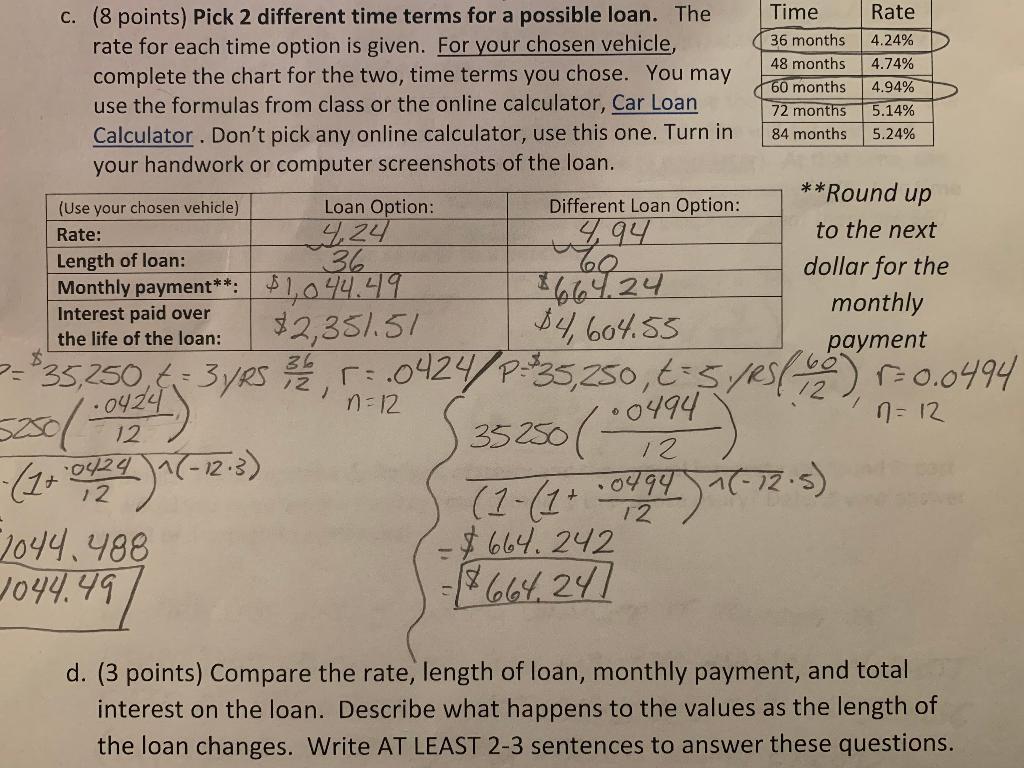 c. (8 points) Pick 2 different time terms for a possible loan. The
rate for each time option is given. For your chosen vehicle,
complete the chart for the two, time terms you chose. You may
use the formulas from class or the online calculator, Car Loan
Calculator . Don't pick any online calculator, use this one. Turn in
your handwork or computer screenshots of the loan.
Time Rate
36 months 4.24%
48 months 4.74%
60 months 4.94%
72 months 5.14%
84 months 5.24%
(Use your chosen vehicle) Loan Option: Different Loan Option:
Rate: 4.24 4.94
Length of loan: 36 60
Monthly payment**: $1,044.49 $664.24
Interest paid over
the life of the loan: $2,351.51 $4,604.55
**Round up
to the next
dollar for the
monthly
payment
P= $35,250, t = 3 yRS 36/12, r = .0424
n=12
5250(.0424/12)
-(1+ .0424/12)^(-12·3)
1044.488
1044.49
P=$35,250, t=5 yRS(60/12), r=0.0494
n= 12
35250(.0494/12)
(1-(1+ .0494/12)^(-12·5)
= $664.242
= $664.24
d. (3 points) Compare the rate, length of loan, monthly payment, and total
interest on the loan. Describe what happens to the values as the length of
the loan changes. Write AT LEAST 2-3 sentences to answer these questions.